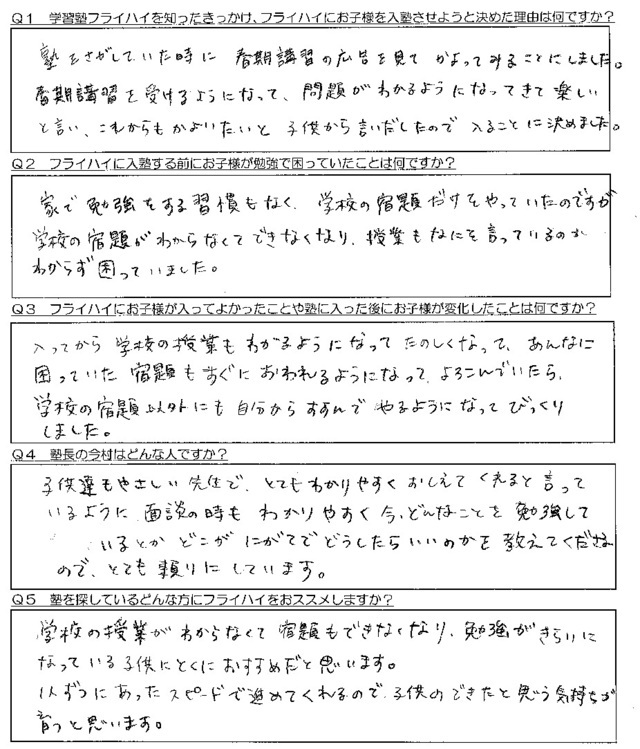 Q1 学習塾フライハイを知ったきっかけ、フライハイにお子様を入塾させようと決めた理由は何ですか？
塾をさがしていた時に 春期講習の広告を見て かよってみることにしました。
春期講習を受けるようになって、問題がわかるようになってきて楽しい
と言い、これからもかよいたいと 子供から言いだしたので 入ることに決めました。
Q2 フライハイに入塾する前にお子様が勉強で困っていたことは何ですか？
家で勉強をする習慣もなく、学校の宿題だけをやっていたのですが
学校の宿題がわからなくてできなくなり、授業もなにを言っているのか
わからず困っていました。
Q3 フライハイにお子様が入ってよかったことや塾に入った後にお子様が変化したことは何ですか？
入ってから 学校の授業も わかるようになって たのしくなって、あんなに
困っていた 宿題も すぐに おわれるようになって、よろこんでいたら、
学校の宿題以外にも 自分から すすんで やるようになって びっくり
しました。
Q4 塾長の今村はどんな人ですか？
子供達もやさしい 先生で、とてもわかりやすく おしえて くれると言って
いるように 面談の時も わかりやすく 今、どんなことを 勉強して
いるとか どこが にがてで どうしたらいいのかを 教えてくださる
ので、とても 頼りに しています。
Q5 塾を探しているどんな方にフライハイをおススメしますか？
学校の授業が わからなくて 宿題もできなくなり、勉強がきらいに
なっている 子供にとくに おすすめだと 思います。
1人ずつにあった スピードで進めてくれるので、子供の できたと思う気持ちが
育つと思います。